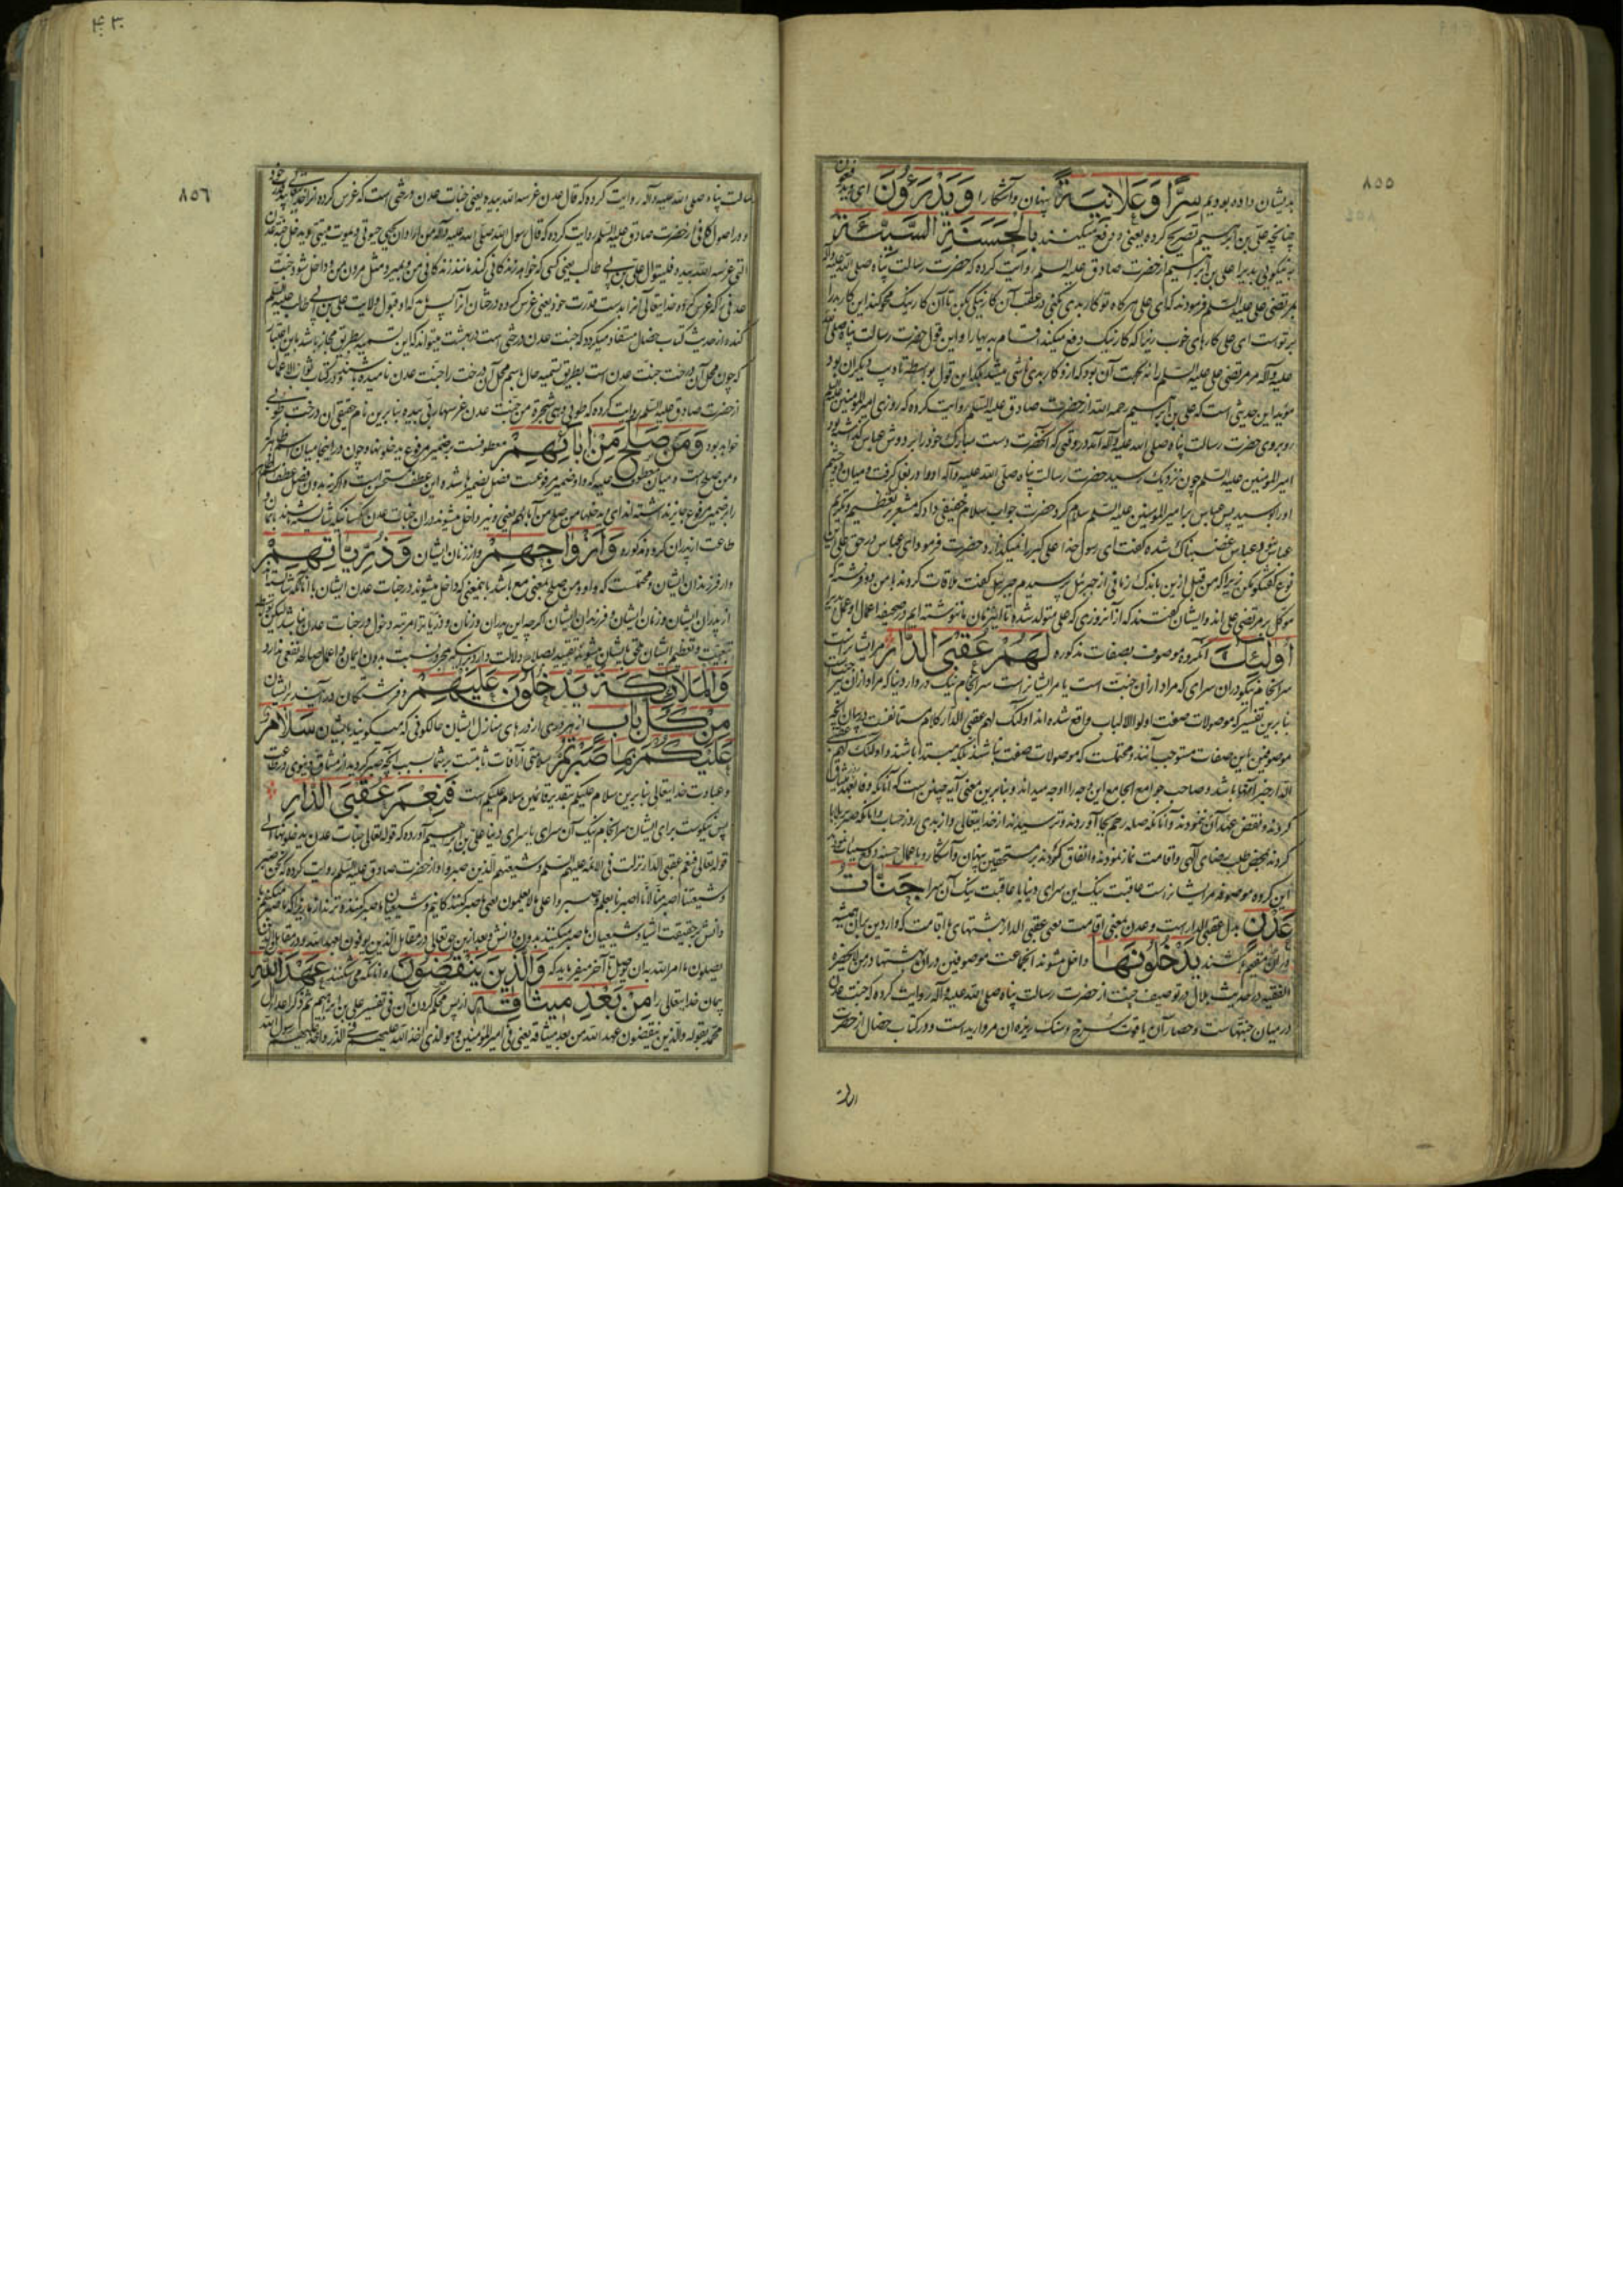 ٨٥٥
بدیشان داده بودیم سِرًّا وَعَلَانِيَةً پنهان وآشکارا وَيَدْرَءُونَ ای ویدفعون
چنانچه علی بن ابراهیم تصریح کرده یعنی و دفع میکنند بِالْحَسَنَةِ السَّيِّئَةَ
به نیکویی بدی را علی بن ابراهیم از حضرت صادق علیه السلم روایت کرده که حضرت رسالت پناه صلی الله علیه وآله
بمرتضی علی علیه السلم فرمودند که ای علی هر کاه تو کار بدی بکنی در عقب آن کار نیکی بکن تا آن کار نیک محو کند این کار بد را
بر تو است ای علی کارهای خوب زیرا که کار نیک دفع میکند اقسام بدیها را و این قول حضرت رسالت پناه صلی الله
علیه وآله مر مرتضی علی علیه السلم را نه بجهت آن بود که از و کار بدی ناشی میشد بلکه این قول بواسطه تادیب دیکران بود
مؤید این حدیثی است که علی بن ابراهیم رحمه الله از حضرت صادق علیه السلم روایت کرده که روزی امیرالمومنین علیه السلم
روبروی حضرت رسالت پناه صلی الله علیه وآله آمد در وقتی که آنحضرت دست مبارک خود را بر دوش عباس گذاشته بود
امیرالمومنین علیه السلم چون نزدیک رسید حضرت رسالت پناه صلی الله علیه وآله او را در بغل کرفت و میان دو چشم
او را بوسید پس عباس با امیرالمومنین علیه السلم سلام کرد حضرت جواب سلام خفیفی داد که مشعر بتعظیم و تکریم
عباس نبود عباس غضبناک شده کفت ای رسول خدا علی کبر را نمیگذارد حضرت فرمود ای عباس در حق علی این
نوع گفتگو مکن زیرا که من قبل ازین باندک زمانی از جبرئیل پرسیدم جبرئیل کفت ملاقات کردند با من دو فرشته که
موکل بر مرتضی علی اند و ایشان گفتند که از آنروزی که علی متولد شده تا این زمان ما ننوشته ایم در صحیفه اعمال او عمل بدی
أُولَئِكَ آنکروه موصوف بصفات مذکوره لَهُمْ عُقْبَى الدَّارِ مر ایشانراست
سرانجام نیکو در آن سرای که مراد از آن جنت است یا مر ایشانراست سرانجام نیک در دار دنیا که مراد از آن نیز جنت
بنابرین تفسیر که موصولات صفت اولوا الالباب واقع شده اند اولئک لهم عقبی الدار کلام مستانفست در بیان آنچه
موصوفین باین صفات مستوجب آنند و محتملست که موصولات صفت نباشند بلکه مبتدا باشند و اولئک لهم عقبی
الدار خبر آنها باشد و صاحب جوامع الجامع این وجه را اوجه میداند و بنابرین معنی آیه چنین است که آنانکه وفا بعهد و میثاق
کردند و نقض عهد آن ننمودند و آنانکه صله رحم بجا آوردند و ترسیدند از خدایتعالی و از بدی روز حساب و آنانکه صبر بر بلایا
کردند بمحض طلب رضای آلهی و اقامت نماز نمودند و انفاق کردند بر مستحقین پنهان و آشکار و با اعمال حسنه دفع سیئات نمودند
این کروه موصوفند مر ایشانراست عاقبت نیک این سرای دنیا یا عاقبت نیک آن سرا جَنَّاتُ
عَدْنٍ بدل عقبی الدار است و عدن بمعنی اقامت یعنی عقبی الدار بهشتهای با اقامت که واردین بهان همیشه
در آن مقیم باشند يَدْخُلُونَهَا داخل میشوند آنجماعت موصوفین در آن بهشتها در من لا یحضره
الفقیه در حدیث بلال در توصیف جنت از حضرت رسالت پناه صلی الله علیه وآله روایت کرده که جنت عدن
در میان جنتهاست و حصار آن یاقوت سرخ و سنک ریزه آن مروارید است و در کتاب خصال از حضرت
٤٣٠
٨٥٦
رسالت پناه صلی الله علیه وآله روایت کرده که قال عدن غرسه الله بیده یعنی جنات عدن درختی است که غرس کرده آنرا خدایتعالی بید قدرت خود
و در اصول کافی از حضرت صادق علیه السلم روایت کرده که قال رسول الله صلی الله علیه وآله من اراد ان یحیی حیوتی و یموت میتتی و یدخل جنة عدن
التی غرسها الله بیده فلیتوال علی بن ابی طالب یعنی کسی که خواهد زندکانی کند مانند زندکانی من و بمیرد مثل مردن من و داخل شود جنت
عدنی را که غرس کرده خدایتعالی آنرا بدست قدرت خود یعنی غرس کرده درختان آنرا پس باید که او قبول ولایت علی بن ابی طالب علیه السلم
کند و از حدیث کتاب خصال مستفاد میگردد که جنت عدن درختی است از بهشت میتواند که این تسمیه بطریق مجاز باشد باین اعتبار
که چون محل آن درخت جنت عدن است بطریق تسمیه حال باسم محل آن درخت را جنت عدن نامیده باشند و در کتاب ثواب الاعمال
از حضرت صادق علیه السلم روایت کرده که طوبی و هی شجرة من جنت عدن غرسها ربی بیده بنابرین نام حقیقی آن درخت طوبی
خواهد بود وَمَنْ صَلَحَ مِنْ آبَائِهِمْ معطوفست بر ضمیر مرفوع یدخلونها و چون در اینجا میان اسم ظاهر که
و من صلح است و میان معطوف علیه که واو ضمیر مرفوعست فصل بضمیر ها شده این عطف مستحسن است و اکرنه بدون فصل عطف اسم ظاهر
را بر ضمیر مرفوع جایز نداشته اند ای یدخلها من صلح من آبائهم یعنی و نیز داخل میشوند در آن جنات عدن کسانیکه شایسته باشند بایمان و
طاعت از پدران کروه مذکوره وَأَزْوَاجِهِمْ و از زنان ایشان وَذُرِّيَّاتِهِمْ
و از فرزندان ایشان و محتملست که واو و من صلح بمعنی مع باشد باینمعنی که داخل میشوند در جنات عدن ایشان با آنانکه شایسته اند
از پدران ایشان و زنان ایشان و فرزندان ایشان اکرچه این پدران و زنان و ذریات را مرتبه دخول در جنات عدن نباشد لیکن بواسطه
تبعیت و تعظیم ایشان ملحق بایشان میشوند و تقیید بصلاح دلالت دارد برینکه مجرد نسبت بدون ایمان و اعمال صالحه نفعی ندارد
وَالْمَلَائِكَةُ يَدْخُلُونَ عَلَيْهِمْ و فرشتکان در آیند بر ایشان
مِنْ كُلِّ بَابٍ از هر دری از درهای منازل ایشان حالکونی که میگویند بایشان سَلَامٌ
عَلَيْكُمْ بِمَا صَبَرْتُمْ سلامتی از آفات ثابتست بر شما بسبب آنچه صبر کردید از مشاق دنیوی در طاعت
و عبادت خدایتعالی بنابرین سلام علیکم بتقدیر قائلین سلام علیکم است فَنِعْمَ عُقْبَى الدَّارِ
پس نیکوست برای ایشان سرانجام نیک آن سرای یا سرای دنیا علی بن ابراهیم آورده که قوله تعالی جنات عدن یدخلونها الی
قوله تعالی فنعم عقبی الدار نزلت فی الائمه علیهم السلم و شیعتهم الذین صبروا و از حضرت صادق علیه السلم روایت کرده که نحن صبر
و شیعتنا اصبر منا لانا صبرنا بعلم و صبروا علی ما لا یعلمون یعنی ما صبر کنندکانیم و شیعیان ما صبر کننده ترند از ما زیرا که ما صبر میکنیم با
دانش بر حقیقت اشیا و شیعیان ما صبر میکنند بدون دانش و بعد ازین حق تعالی در مقابل الذین یوفون بعهد الله و در مقابل الذین
یصلون ما امر الله به ان یوصل تا آخر میفرماید که وَالَّذِينَ يَنْقُضُونَ و آنانکه می شکنند عَهْدَ اللَّهِ
پیمان خدایتعالی را مِنْ بَعْدِ مِيثَاقِهِ از پس محکم کردن آن فی تفسیر علی بن ابراهیم ثم ذکر اعداء آل
محمد بقوله والذین ینقضون عهد الله من بعد میثاقه یعنی فی امیرالمؤمنین و هو الذی اخذ الله علیهم فی الذر واخذ علیهم رسول الله